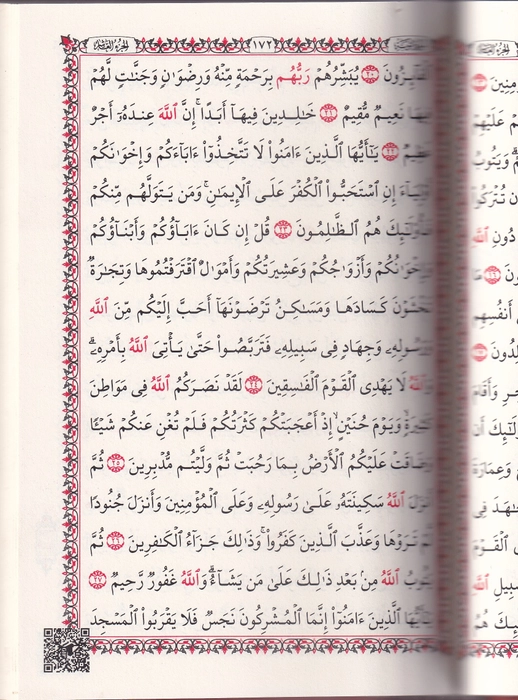 الجزء العاشر ١٧٢
ٱلۡفَآئِزُونَ ٢٠ يُبَشِّرُهُمۡ رَبُّهُم بِرَحۡمَةٖ مِّنۡهُ وَرِضۡوَٰنٖ وَجَنَّٰتٖ لَّهُمۡ
فِيهَا نَعِيمٞ مُّقِيمٌ ٢١ خَٰلِدِينَ فِيهَآ أَبَدًاۚ إِنَّ ٱللَّهَ عِندَهُۥٓ أَجۡرٌ
عَظِيمٞ ٢٢ يَٰٓأَيُّهَا ٱلَّذِينَ ءَامَنُواْ لَا تَتَّخِذُوٓاْ ءَابَآءَكُمۡ وَإِخۡوَٰنَكُمۡ
أَوۡلِيَآءَ إِنِ ٱسۡتَحَبُّواْ ٱلۡكُفۡرَ عَلَى ٱلۡإِيمَٰنِۚ وَمَن يَتَوَلَّهُم مِّنكُمۡ
فَأُوْلَٰٓئِكَ هُمُ ٱلظَّٰلِمُونَ ٢٣ قُلۡ إِن كَانَ ءَابَآؤُكُمۡ وَأَبۡنَآؤُكُمۡ
وَإِخۡوَٰنُكُمۡ وَأَزۡوَٰجُكُمۡ وَعَشِيرَتُكُمۡ وَأَمۡوَٰلٌ ٱقۡتَرَفۡتُمُوهَا وَتِجَٰرَةٞ
تَخۡشَوۡنَ كَسَادَهَا وَمَسَٰكِنُ تَرۡضَوۡنَهَآ أَحَبَّ إِلَيۡكُم مِّنَ ٱللَّهِ
وَرَسُولِهِۦ وَجِهَادٖ فِي سَبِيلِهِۦ فَتَرَبَّصُواْ حَتَّىٰ يَأۡتِيَ ٱللَّهُ بِأَمۡرِهِۦۗ
وَٱللَّهُ لَا يَهۡدِي ٱلۡقَوۡمَ ٱلۡفَٰسِقِينَ ٢٤ لَقَدۡ نَصَرَكُمُ ٱللَّهُ فِي مَوَاطِنَ
كَثِيرَةٖ وَيَوۡمَ حُنَيۡنٍ إِذۡ أَعۡجَبَتۡكُمۡ كَثۡرَتُكُمۡ فَلَمۡ تُغۡنِ عَنكُمۡ شَيۡـٔٗا
وَضَاقَتۡ عَلَيۡكُمُ ٱلۡأَرۡضُ بِمَا رَحُبَتۡ ثُمَّ وَلَّيۡتُم مُّدۡبِرِينَ ٢٥ ثُمَّ
أَنزَلَ ٱللَّهُ سَكِينَتَهُۥ عَلَىٰ رَسُولِهِۦ وَعَلَى ٱلۡمُؤۡمِنِينَ وَأَنزَلَ جُنُودٗا
لَّمۡ تَرَوۡهَا وَعَذَّبَ ٱلَّذِينَ كَفَرُواْۚ وَذَٰلِكَ جَزَآءُ ٱلۡكَٰفِرِينَ ٢٦ ثُمَّ
يَتُوبُ ٱللَّهُ مِنۢ بَعۡدِ ذَٰلِكَ عَلَىٰ مَن يَشَآءُۗ وَٱللَّهُ غَفُورٞ رَّحِيمٞ ٢٧
يَٰٓأَيُّهَا ٱلَّذِينَ ءَامَنُوٓاْ إِنَّمَا ٱلۡمُشۡرِكُونَ نَجَسٞ فَلَا يَقۡرَبُواْ ٱلۡمَسۡجِدَ